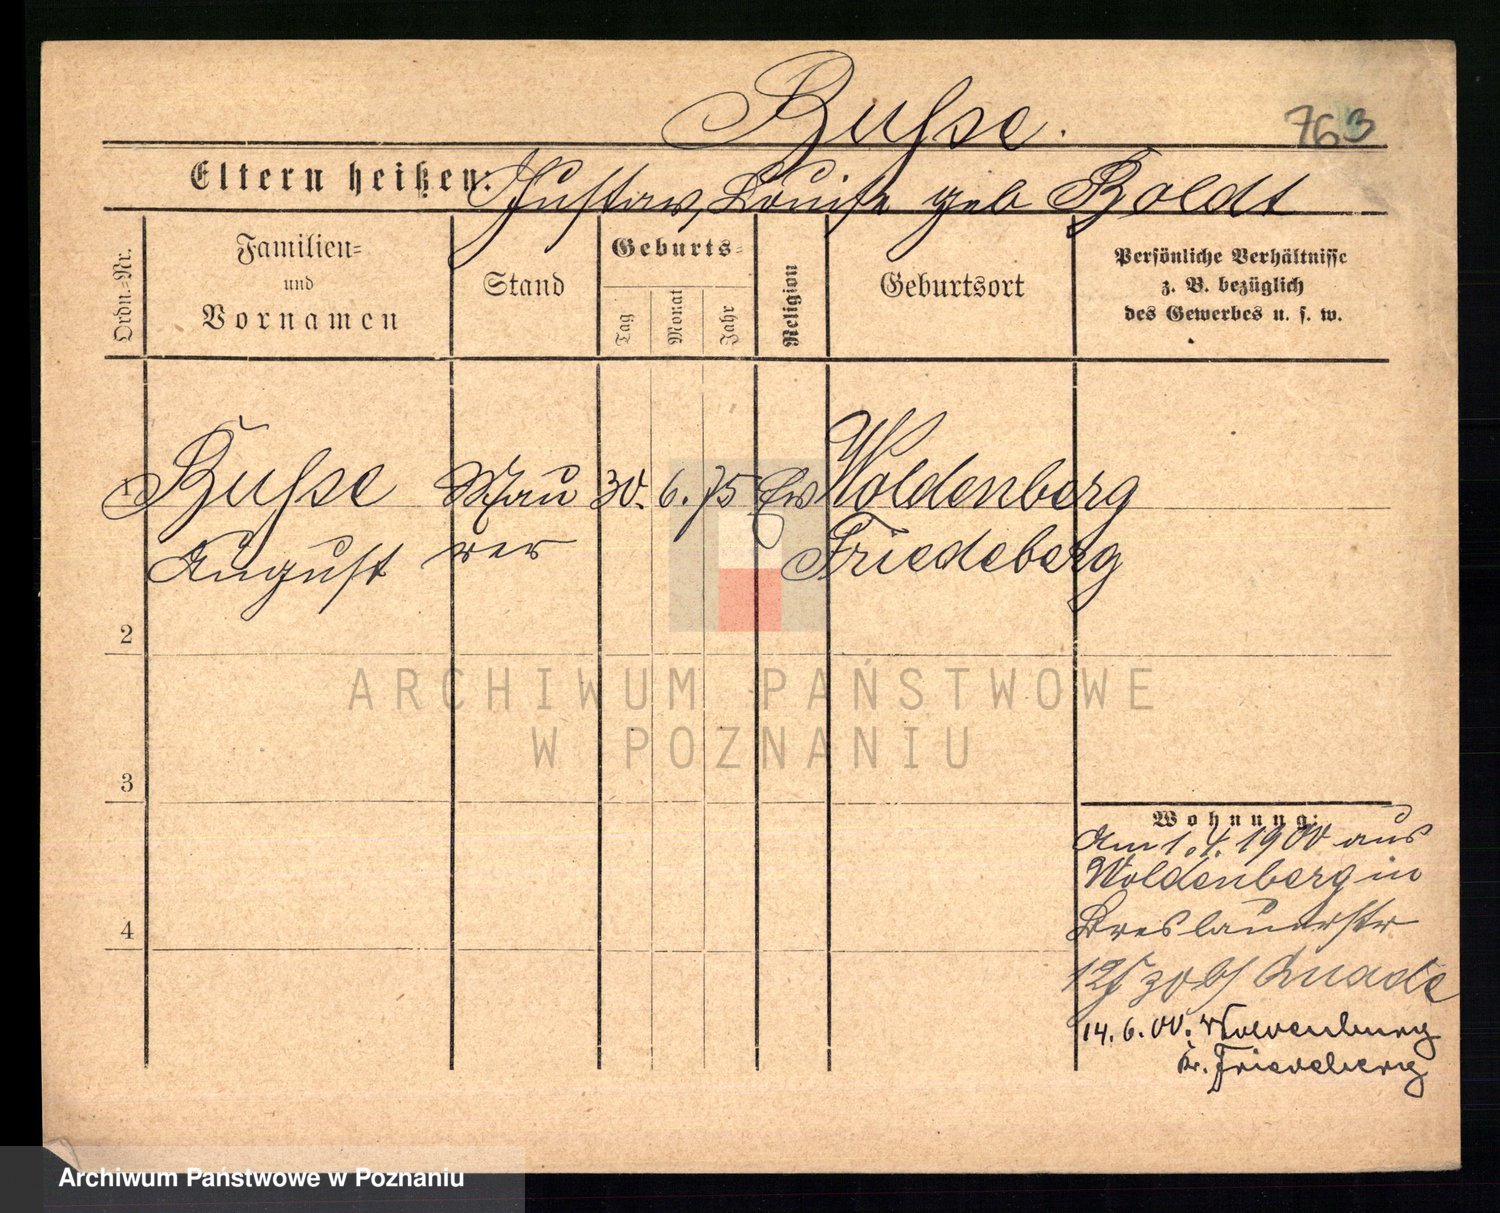 Busse.
763
Eltern heißen: Gustav, Louise geb Boldt
Ordn.=Nr.
Familien=
und
Vornamen
Stand
Geburts=
Tag
Monat
Jahr
Religion
Geburtsort
Persönliche Verhältnisse
z. B. bezüglich
des Gewerbes u. s. w.
1 Busse Mau 30. 6. 75 Ev Woldenberg
August rer Friedeberg
2
ARCHIWUM PAŃSTWOWE
W POZNANIU
3
Wohnung:
Am 1. 4. 1900 aus
Woldenberg in
Breslauerstr
4
12 bei Quade
14. 6. 00. Woldenburg
Kr. Friedeberg
Archiwum Państwowe w Poznaniu